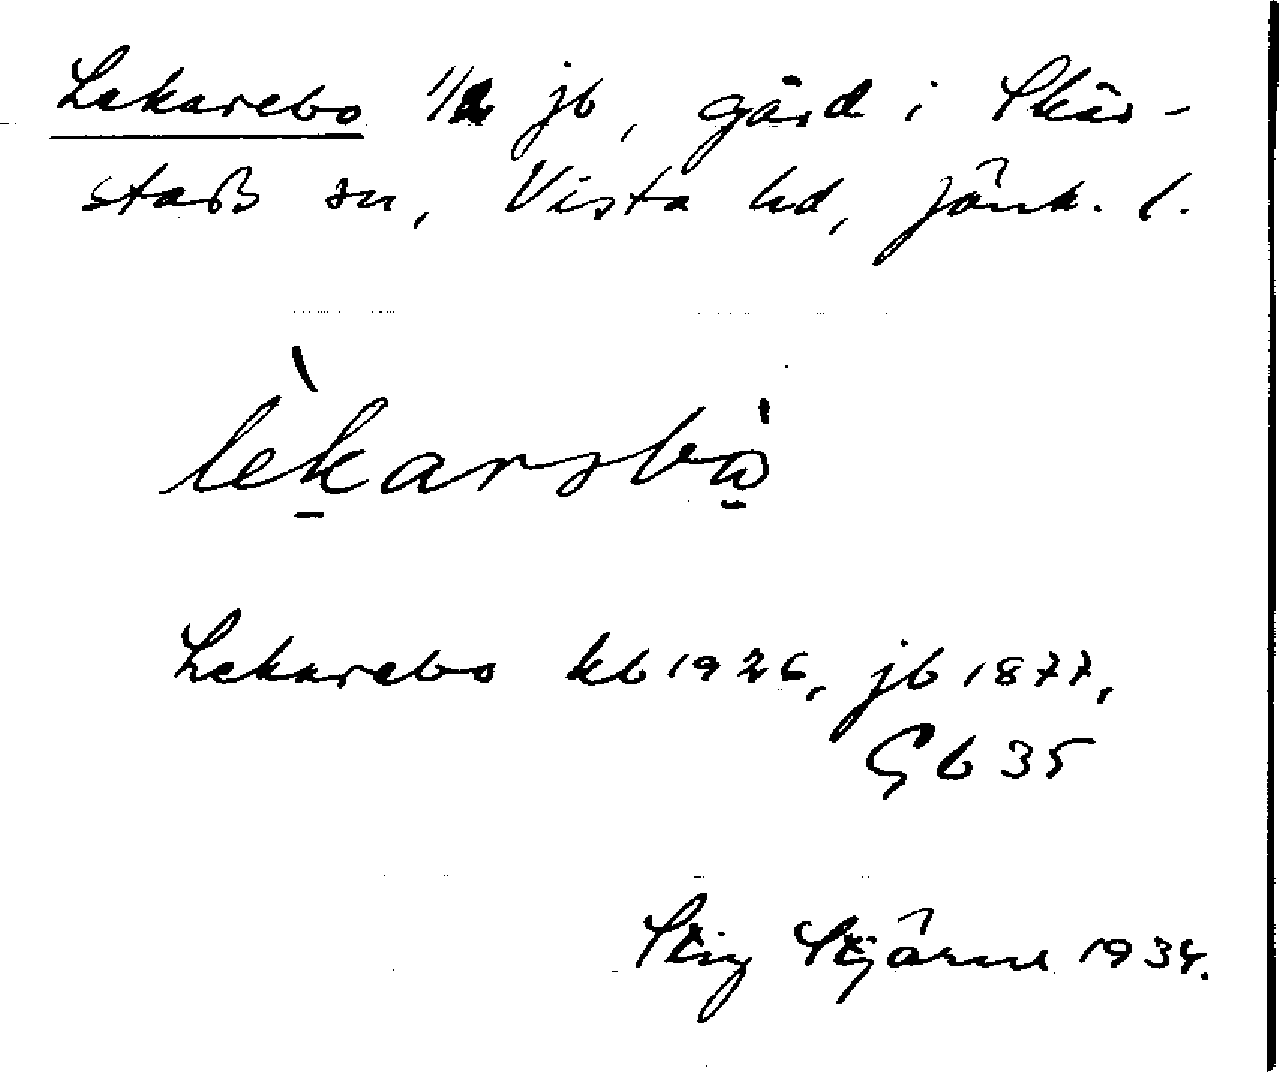 Lekarebo 1/2 jb, gård i Skär-
stads sn, Vista hd, Jönk. l.
lèkarsbò
Lekarebo kb 1926, jb 1877,
Gb 35
Stig Stjärne 1934.